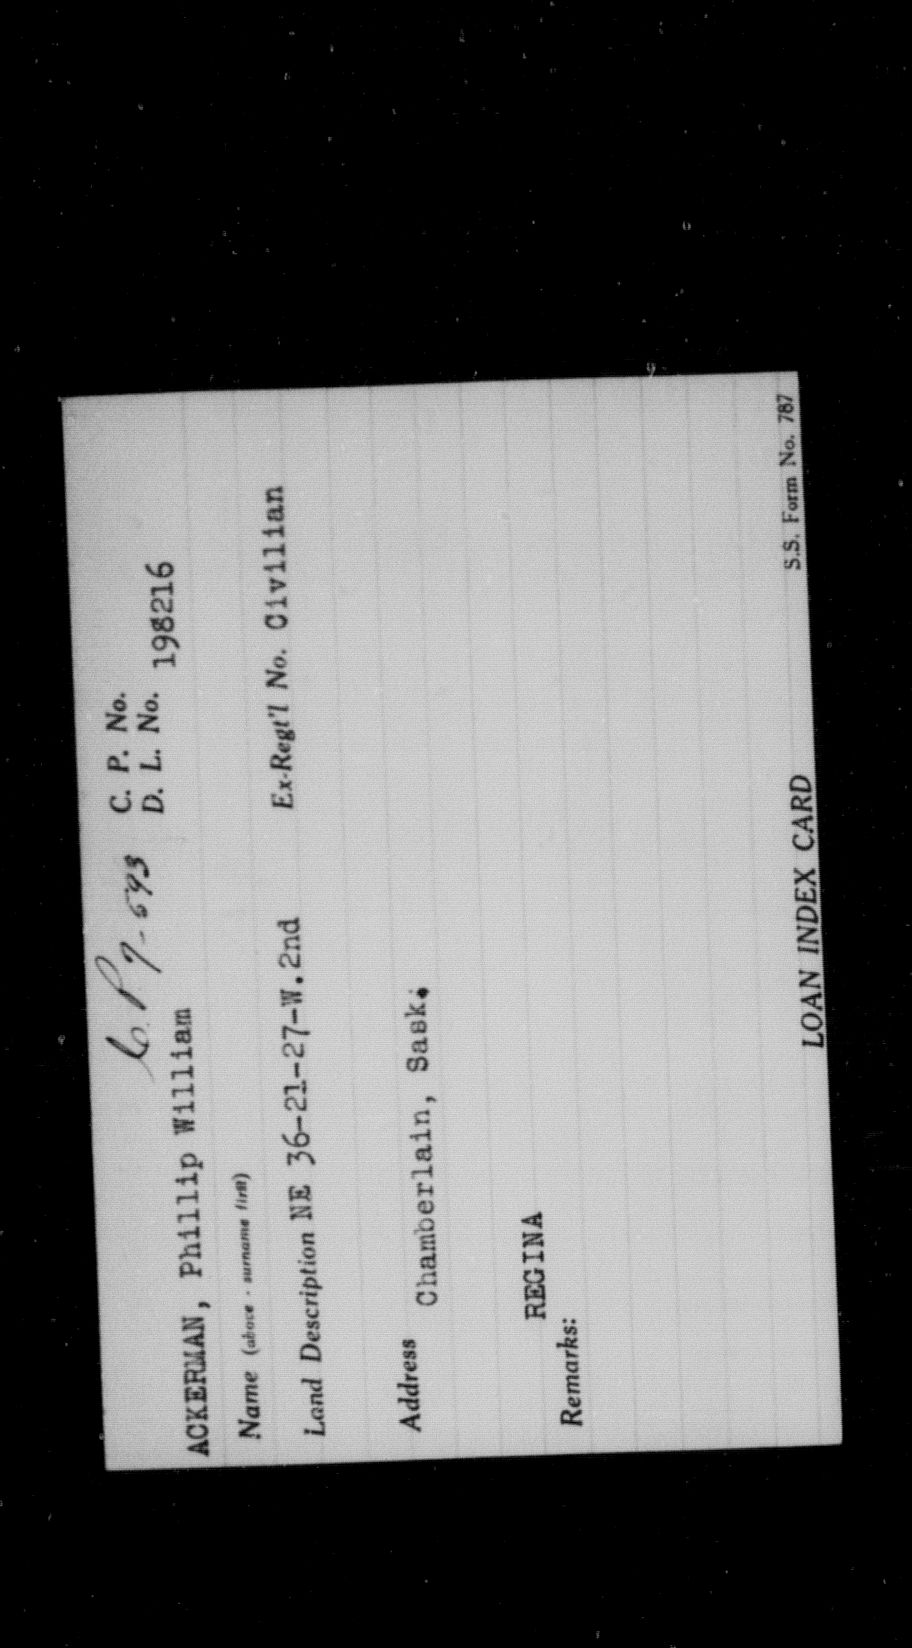 C.P. 7-593 C. P. No.
D. L. No. 198216
ACKERMAN, Phillip William
Name (above - surname first)
Land Description NE 36-21-27-W.2nd Ex-Regt'l No. Civilian
Address Chamberlain, Sask.
REGINA
Remarks:
LOAN INDEX CARD S.S. Form No. 787